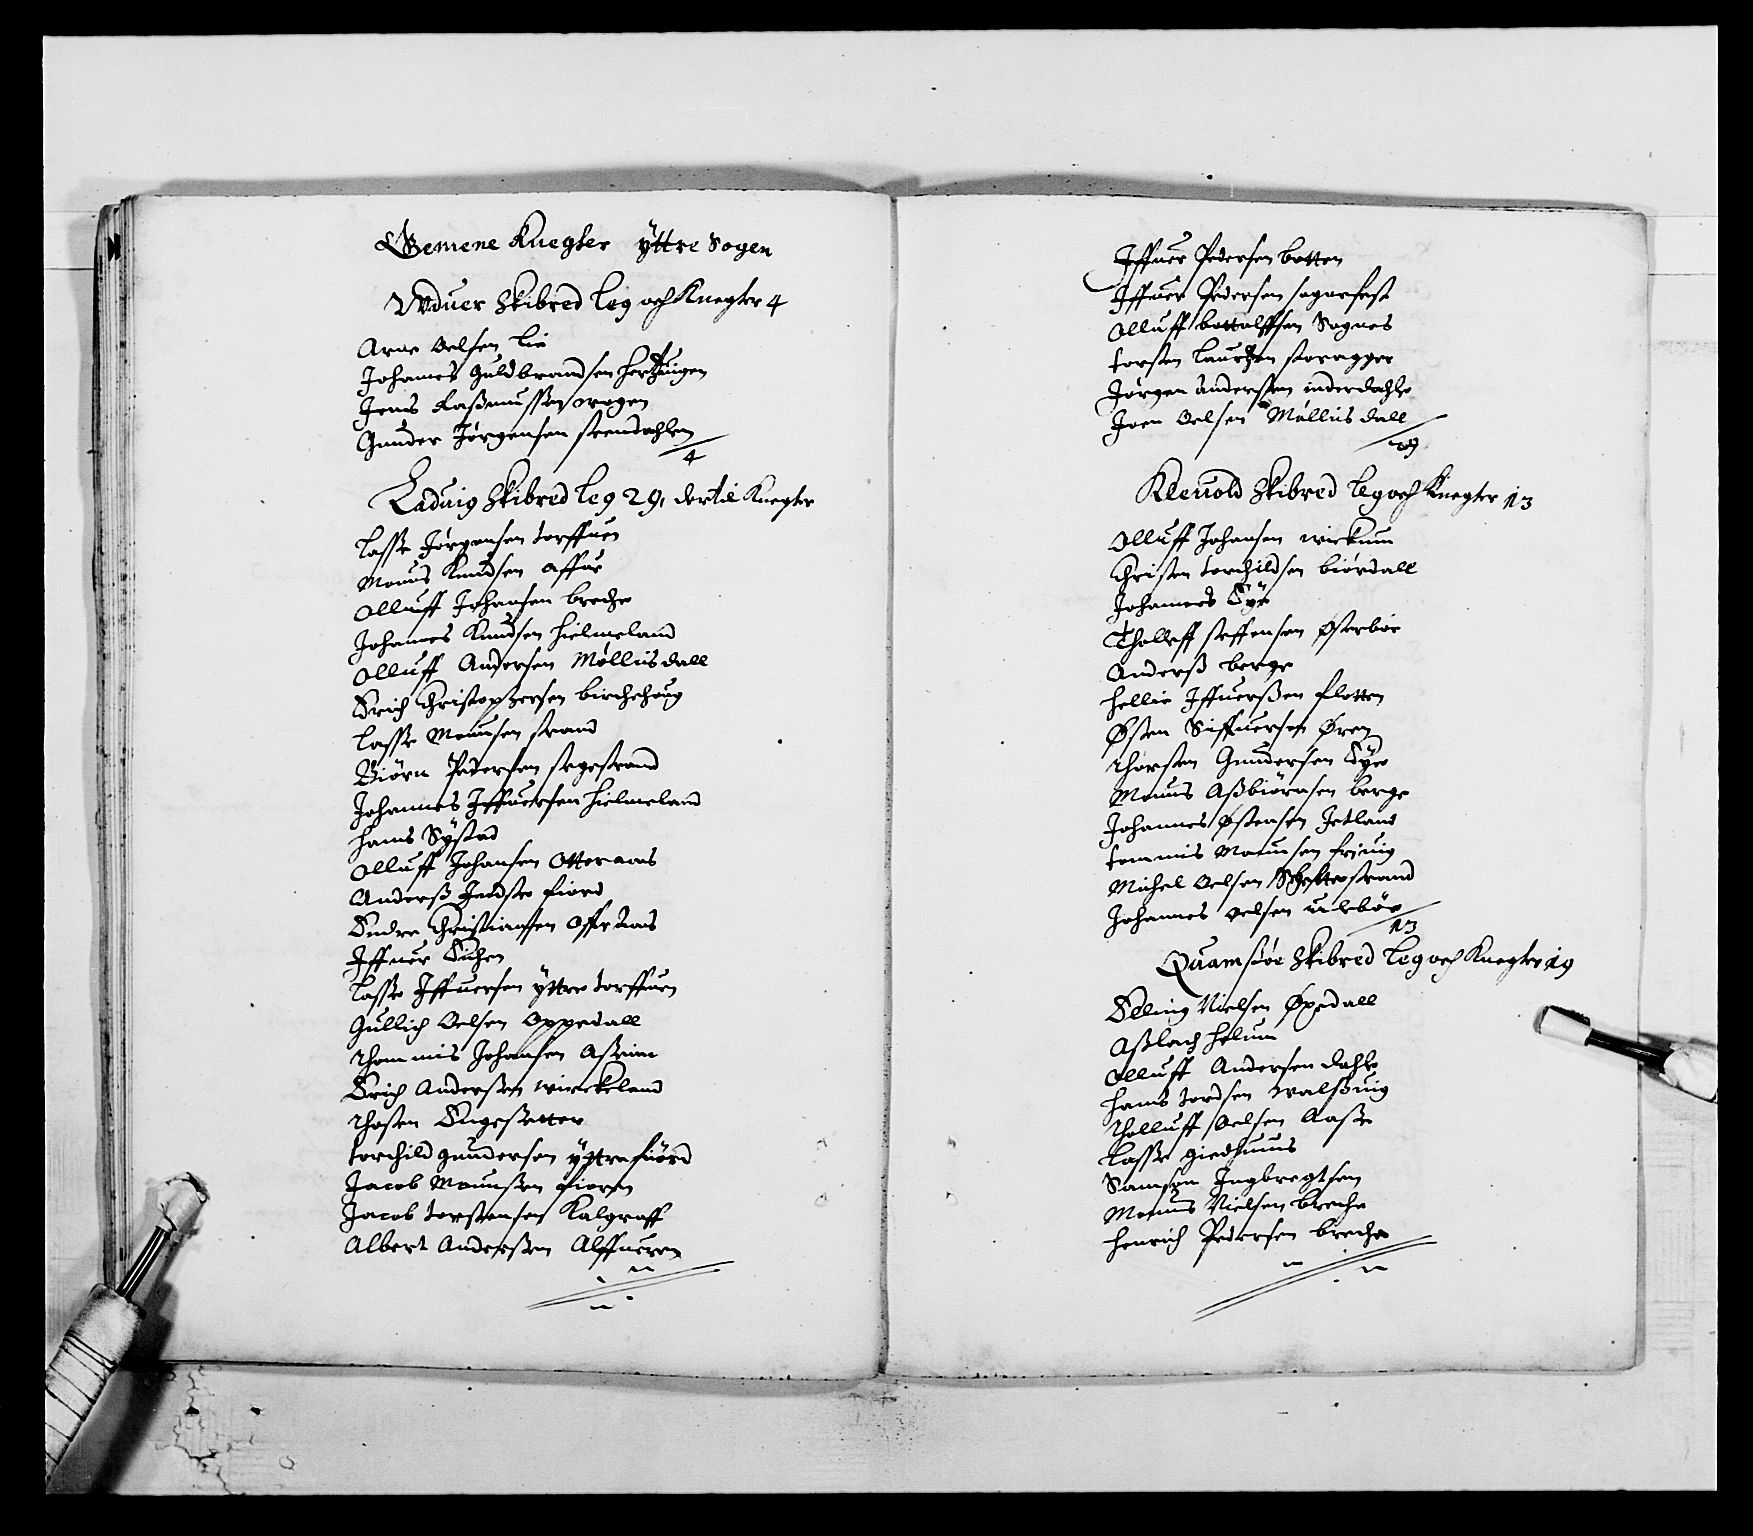 Gemene Knegter yttre Sogen
Wduer Skibred leg och Knegter 4
Arne Oelsen Lie
Johanes Guldbrandsen Hertzuigen
Jens Raßmussen wogen
Gunder Jørgensen stendahlen
4
Laduig Skibred leg 29, dertil Knegter
Lasse Jørgensen torffuen
Monns Knudsen affue
Olluff Johansen breche
Johanes Knudsen Hielmeland
Olluff Andersen Møllisdall
Erich Christophersen birchehoug
Lasse Monnsen strand
Biörn Pedersen segestrand
Johannes Iffuersen Hielmeland
Hans Systad
Olluff Johansen Otteraas
Anderß Jendste fiord
Endre Christiansen Offredaas
Iffuer Eichen
Lasse Iffuersen yttre torffuen
Gullich Oelsen Oppedall
Thommis Johansen Aßeim
Erich Anderßen wirckeland
Thosten Engesetter
torchild gundersen yttrefiörd
Jacob Monnßen fioren
Jacob torstensen Kalgraff
Albert Anderßen Alffueren
Iffuer Pedersen botten
Iffuer Pedersen sognefest
Olluff bottolffsen Sognes
torsten Laurtzen storagger
Jørgen Anderssen inderdahle
Joen Oelsen Møllisdall
29
Kleuold Skibred leg och Knegter 13
Olluff Johansen wirkum
Christen torchildsen biördall
Johannes Eye
Tholleff steffensen Østerbøe
Anderß berge
Hellie Iffuerßen flotten
Østen Siffuersen Øren
Thorsten Gundersen Eye
Monns Aßbiörnsen berge
Johannes Østensen Jetland
tommis Monnsen friuig
Michel Oelsen Schettestrand
Johannes oelsen uluebøe
13
Quamsöe Skibred leg och Knegter 19
Elling Nielsen Øpedall
Aßlach Helum
Olluff Andersen dahle
Hans tordsen walßuig
Tholluff Oelsen Aaße
Lasse giedhuus
Samson Ingbregtsen
Monns Nielsen breche
Henrich Pedersen breche